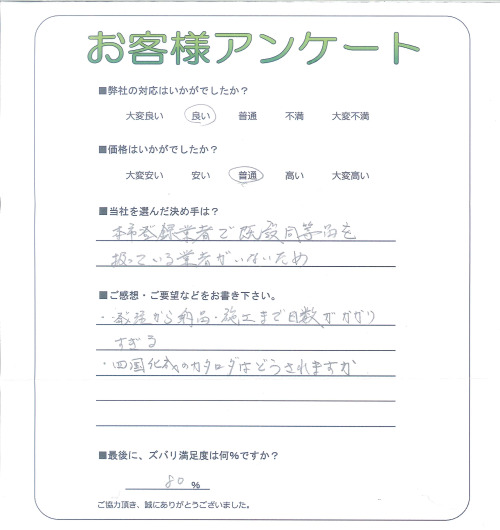 お客様アンケート
■弊社の対応はいかがでしたか？
大変良い 良い 普通 不満 大変不満
■価格はいかがでしたか？
大変安い 安い 普通 高い 大変高い
■当社を選んだ決め手は？
本市登録業者で既設同等品を
扱っている業者がいないため
■ご感想・ご要望などをお書き下さい。
・発注から納品・施工まで日数がかかり
すぎる
・四国化成のカタログはどうされますか
■最後に、ズバリ満足度は何%ですか？
80 %
ご協力頂き、誠にありがとうございました。